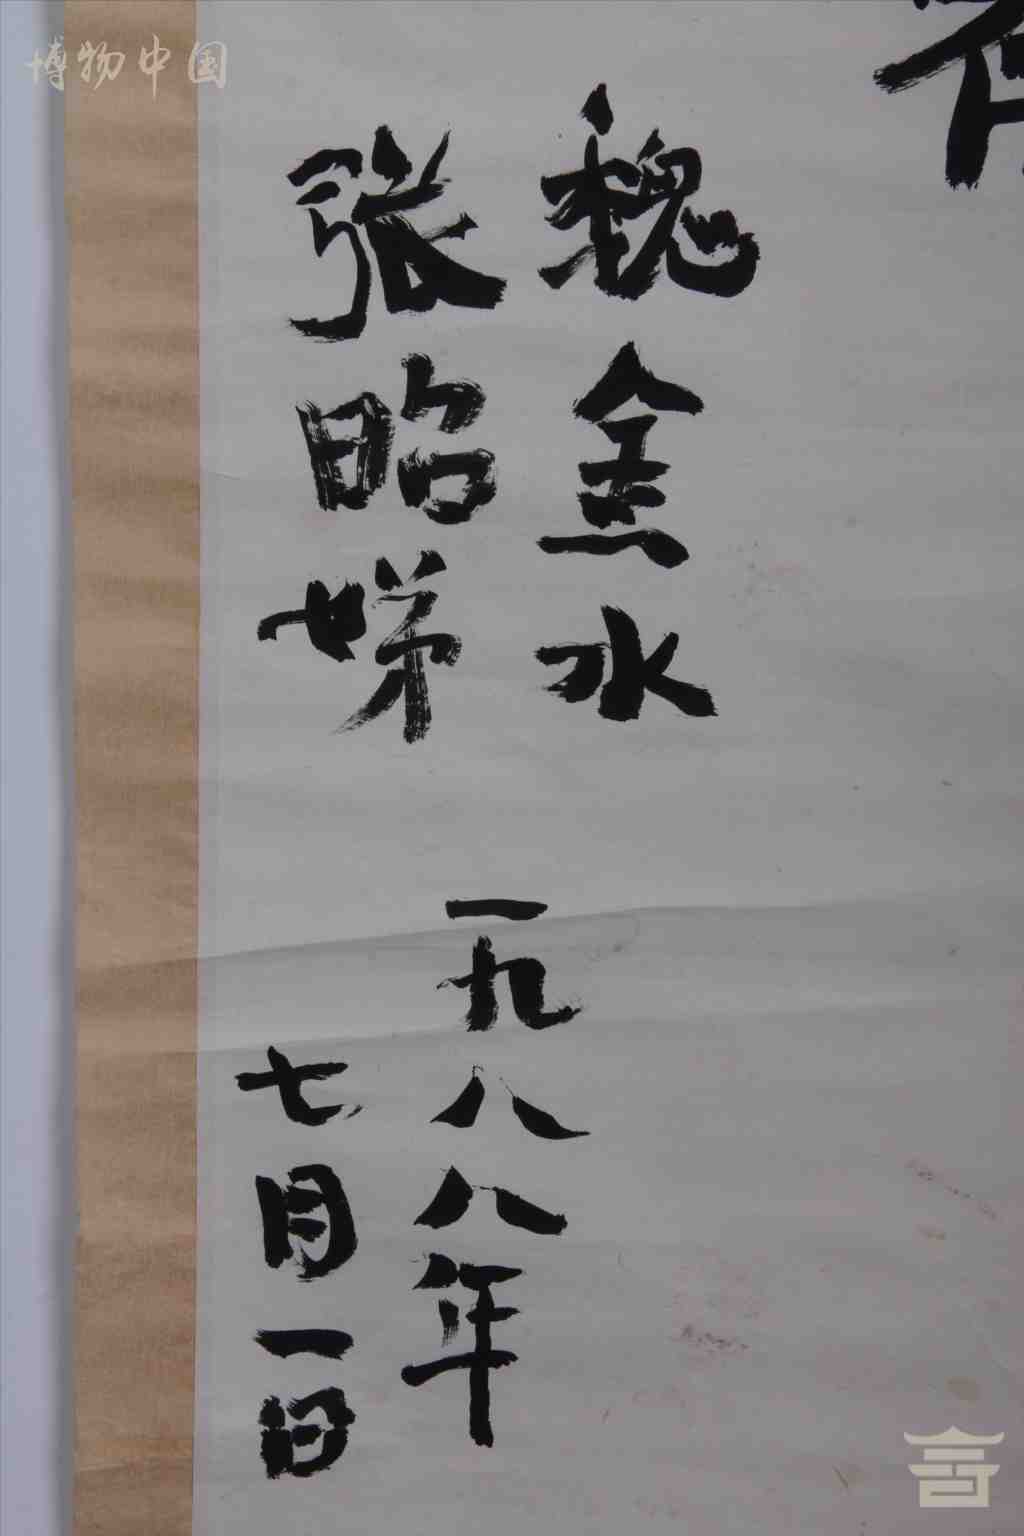 魏金水
张昭娣
一九八八年
七月一日
博物中国